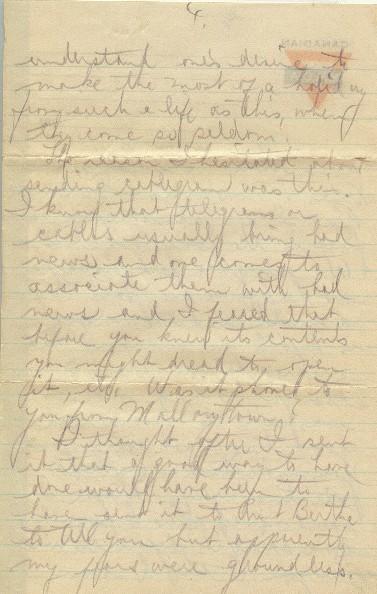 4.
understand one's desire to
make the most of a holiday
from such a life as this, when
they come so seldom.
The reason I hesitated about
sending cablegram was this.
I know that telegrams or
cables usually bring bad
news and one comes to
associate them with bad
news and I feared that
before you knew its contents
you might dread to open
it, etc. Was it phoned to
you from Mallorytown?
I thought after I sent
it that a good way to have
done would have been to
have sent it to Aunt Bertha
to tell you but apparently
my fears were groundless.
CANADIAN